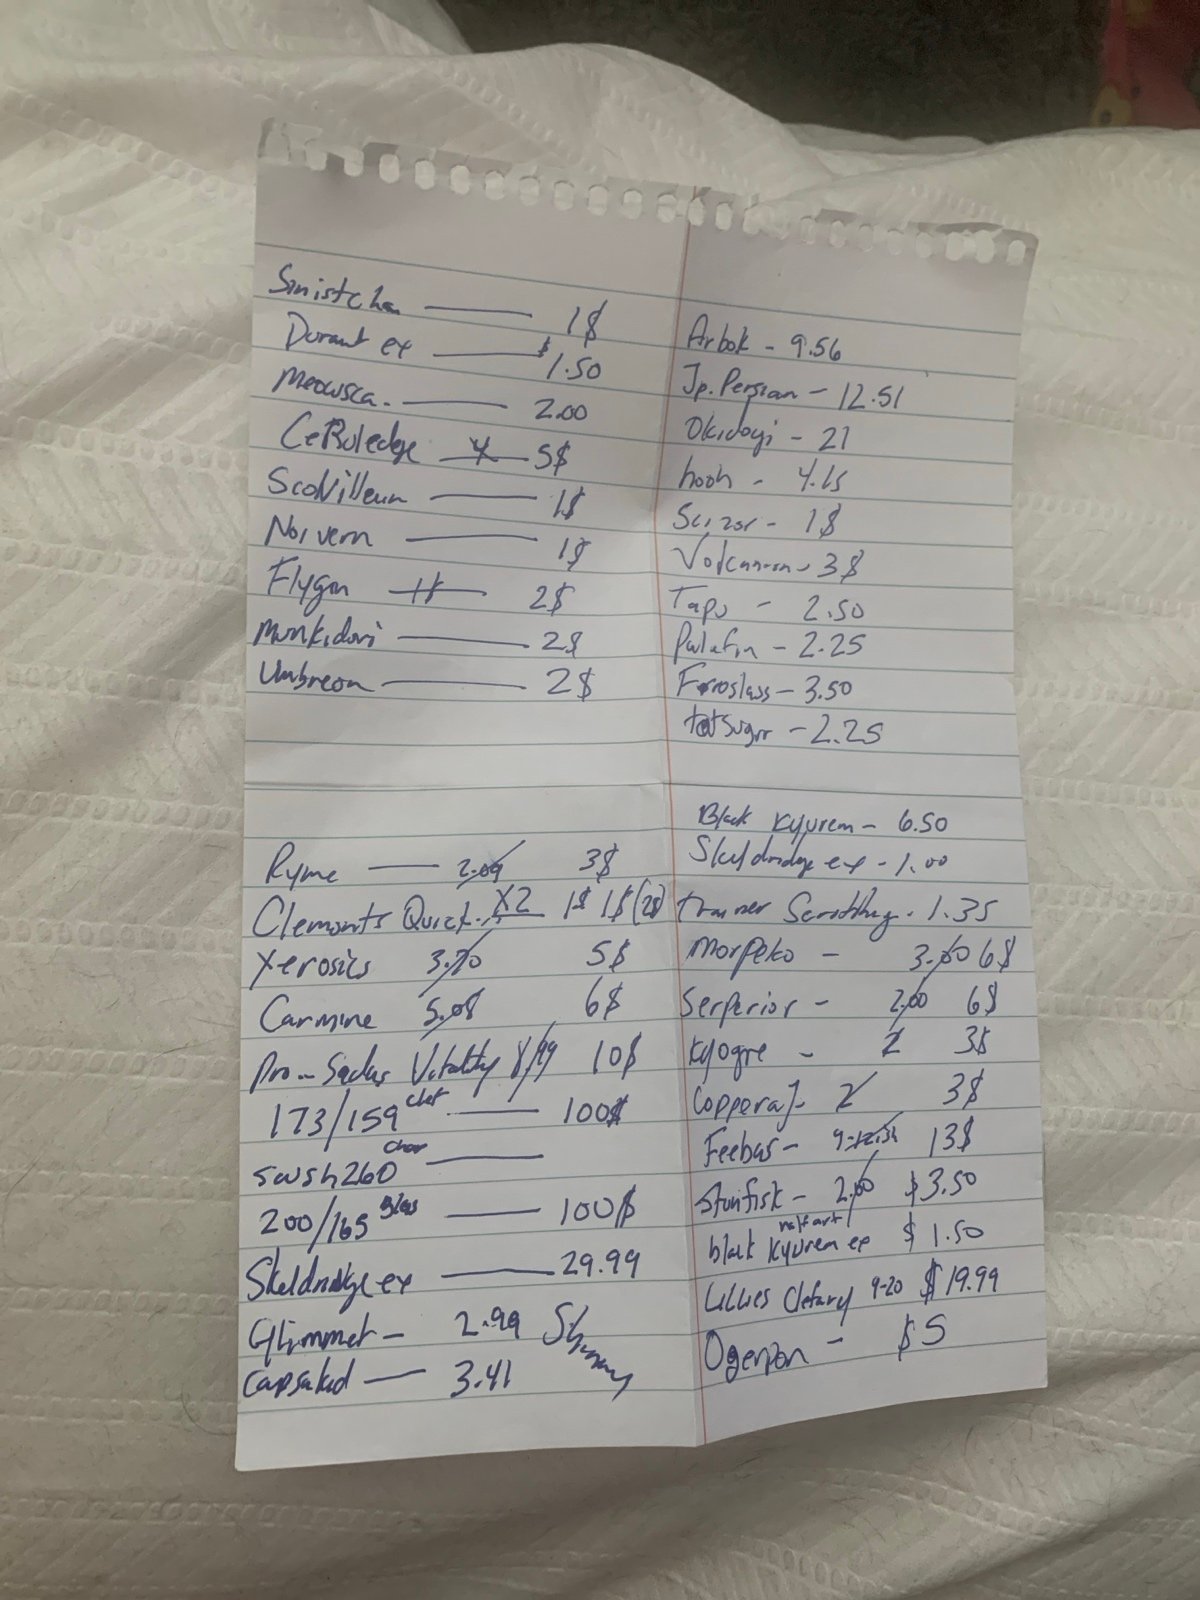 Sinistcha — 1$
Durant ex — $1.50
Meowsca. — 2.00
CeRuledge — 5$
Scovilleun — 1$
Noivern — 1$
Flygon — 2$
Munkidori — 2$
Umbreon — 2$
Arbok - 9.56
Jp. Persian - 12.51
Okidogi - 21
hooh - 4.15
Scizor - 1$
Volcanion - 3$
Tapu - 2.50
Palafin - 2.25
Froslass - 3.50
tatsugir - 2.25
Ryme — 2.09 3$
Clemonts Quick. X2 1$ 1$ (2$)
Xerosics 3.70 5$
Carmine 5.08 6$
Pro - Sadas Vitality 8/99 10$
173/159 char — 100$
swsh260 char —
200/165 Blas — 100$
Skeldridge ex — 29.99
Glimmet - 2.99 Shiny
Capsakid — 3.41
Black Kyurem - 6.50
Skeldridge ex - 1.00
trainer - 1.35
Morpeko - 3.00 6$
Serperior - 2.00 6$
Kyogre - 2 3$
Copperaj- 2 3$
Feebas - 9-12.54 13$
Stunfisk - 2.00 $3.50
black Kyurem ex half art $1.50
Lillies Clefary 9-20 $19.99
Ogerpon - $5